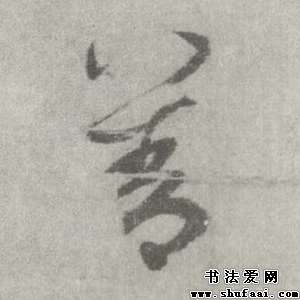 善
书法爱网
www.shufaai.com